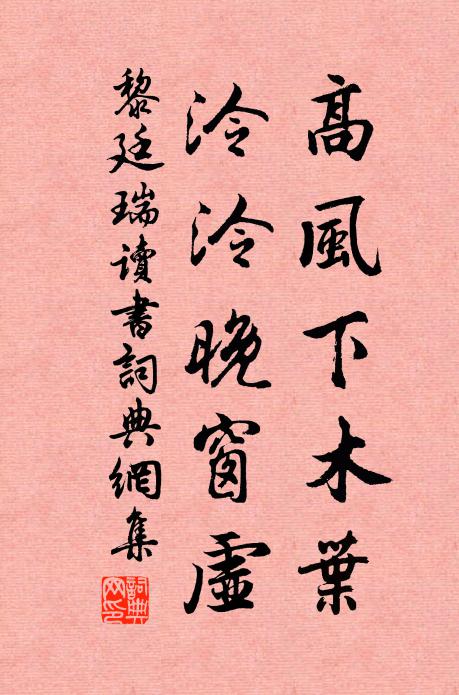 高風下木葉
泠泠晚窗虛
黎廷瑞讀書詞典網集
詞典網印